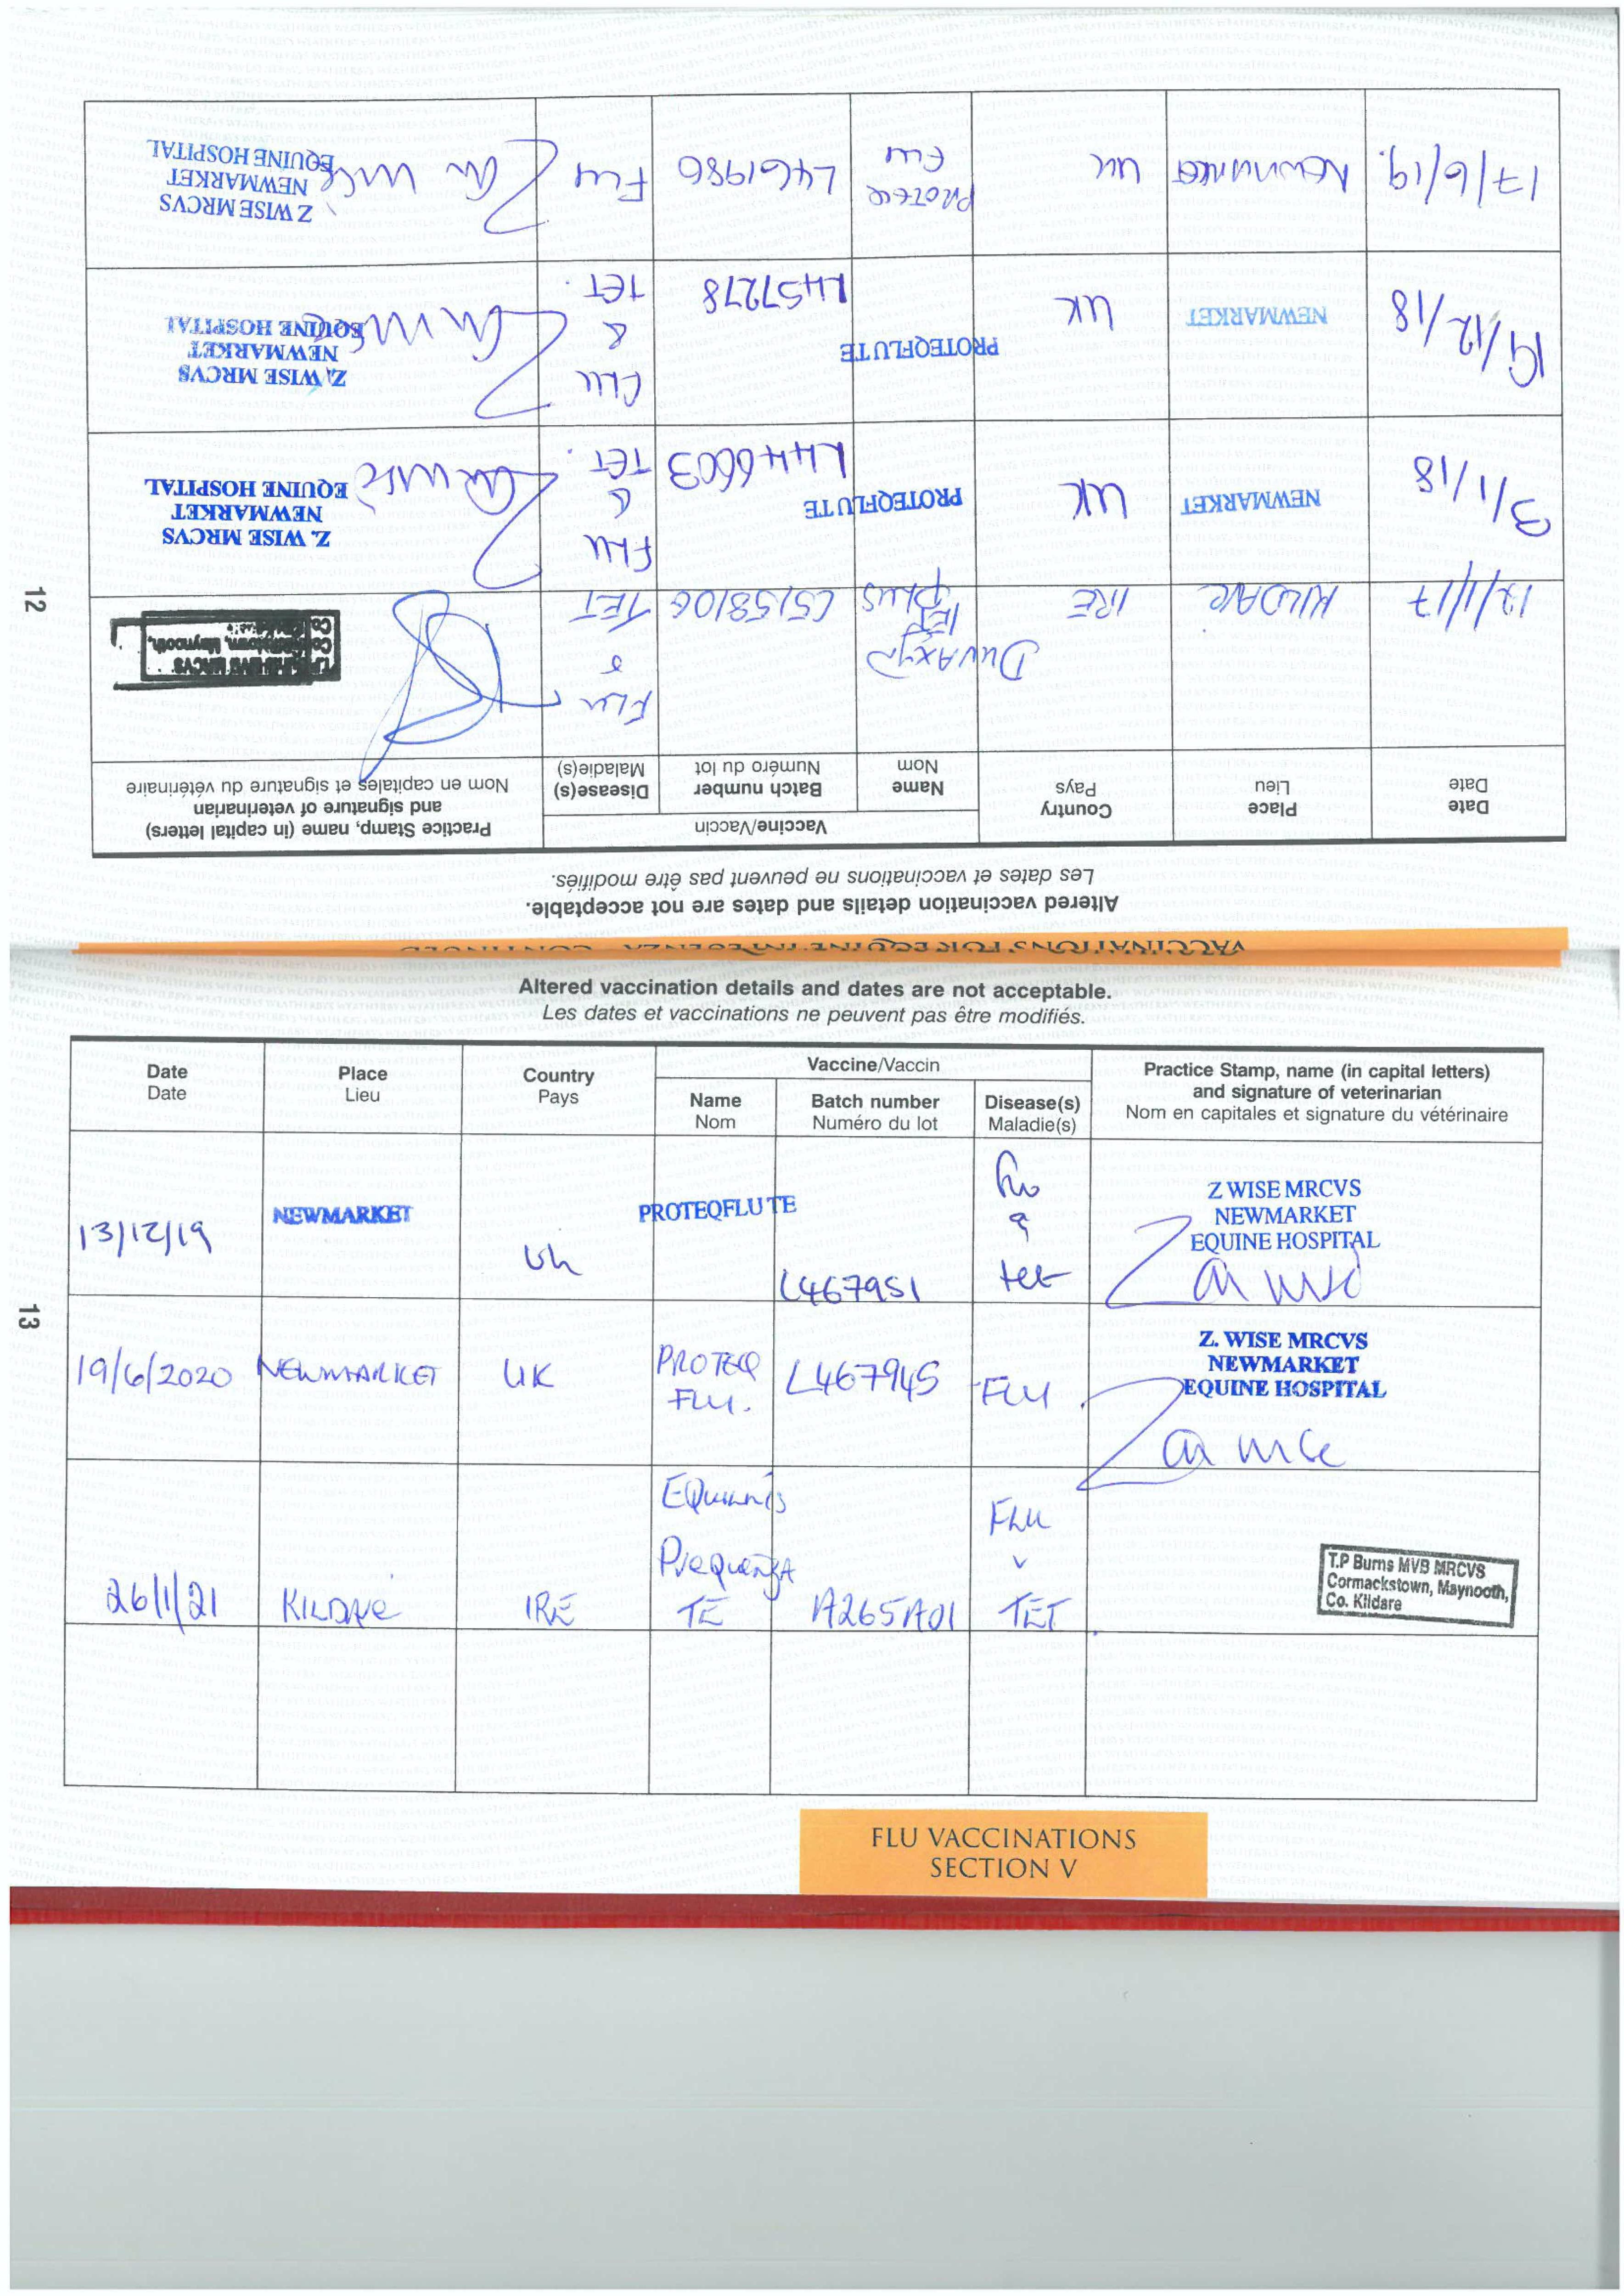 12
VACCINATIONS FOR EQUINE INFLUENZA CONTINUED
Altered vaccination details and dates are not acceptable.
Les dates et vaccinations ne peuvent pas être modifiés.
Date
Date
Place
Lieu
Country
Pays
Vaccine/Vaccin
Name
Nom
Batch number
Numéro du lot
Disease(s)
Maladie(s)
Practice Stamp, name (in capital letters)
and signature of veterinarian
Nom en capitales et signature du vétérinaire
KILDARE
IRE
Duvaxyn
IET
Plus
C515810C
FLU
&
TET
3/1/18
NEWMARKET
UK
PROTEQFLUTE
L446603
FLU
&
TET.
Z. WISE MRCVS
NEWMARKET
EQUINE HOSPITAL
19/12/18
NEWMARKET
UK
PROTEQFLUTE
L457278
FLU
&
TET.
Z. WISE MRCVS
NEWMARKET
EQUINE HOSPITAL
17/6/19.
NEWMARKET
UK
PROTEQ
FLU
L461986
FLU
Z WISE MRCVS
NEWMARKET
EQUINE HOSPITAL
13
Altered vaccination details and dates are not acceptable.
Les dates et vaccinations ne peuvent pas être modifiés.
Date
Date
Place
Lieu
Country
Pays
Vaccine/Vaccin
Name
Nom
Batch number
Numéro du lot
Disease(s)
Maladie(s)
Practice Stamp, name (in capital letters)
and signature of veterinarian
Nom en capitales et signature du vétérinaire
13/12/19
NEWMARKET
Uk
PROTEQFLUTE
L467951
flu
&
tet
Z WISE MRCVS
NEWMARKET
EQUINE HOSPITAL
19/6/2020
NEWMARKET
UK
PROTEQ
FLU.
L467945
FLU
Z. WISE MRCVS
NEWMARKET
EQUINE HOSPITAL
26/1/21
KILDARE
IRE
Equilis
Prequenza
TE
A265A01
FLU
TET
T.P Burns MVB MRCVS
Cormackstown, Maynooth,
Co. Kildare
FLU VACCINATIONS
SECTION V